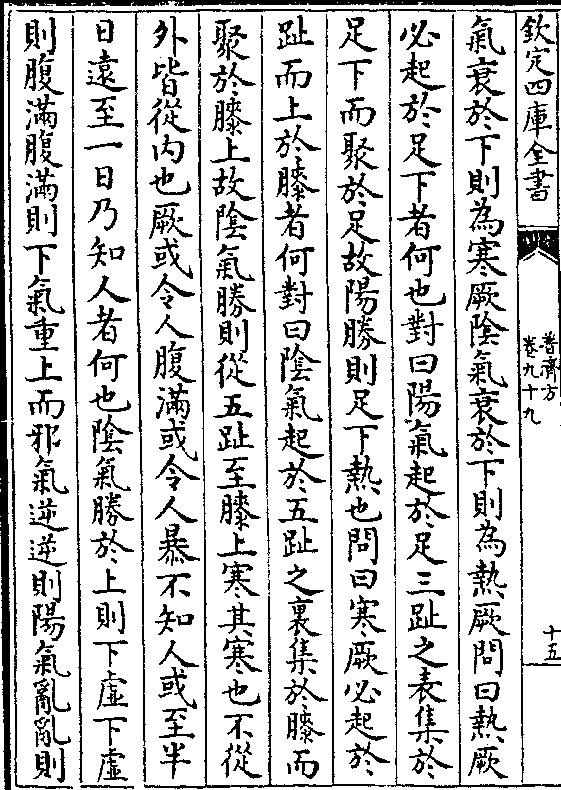 欽定四庫全書
普濟方
卷九十九
十五
氣衰於下則為寒厥陰氣衰於下則為熱厥問曰熱厥
必起於足下者何也對曰陽氣起於足三趾之表集於
足下而聚於足故陽勝則足下熱也問曰寒厥必起於
趾而上於膝者何對曰陰氣起於五趾之裏集於膝而
聚於膝上故陰氣勝則從五趾至膝上寒其寒也不從
外皆從内也厥或令人腹滿或令人暴不知人或至半
日遠至一日乃知人者何也陰氣勝於上則下虛下虛
則腹滿腹滿則下氣重上而邪氣逆逆則陽氣亂亂則